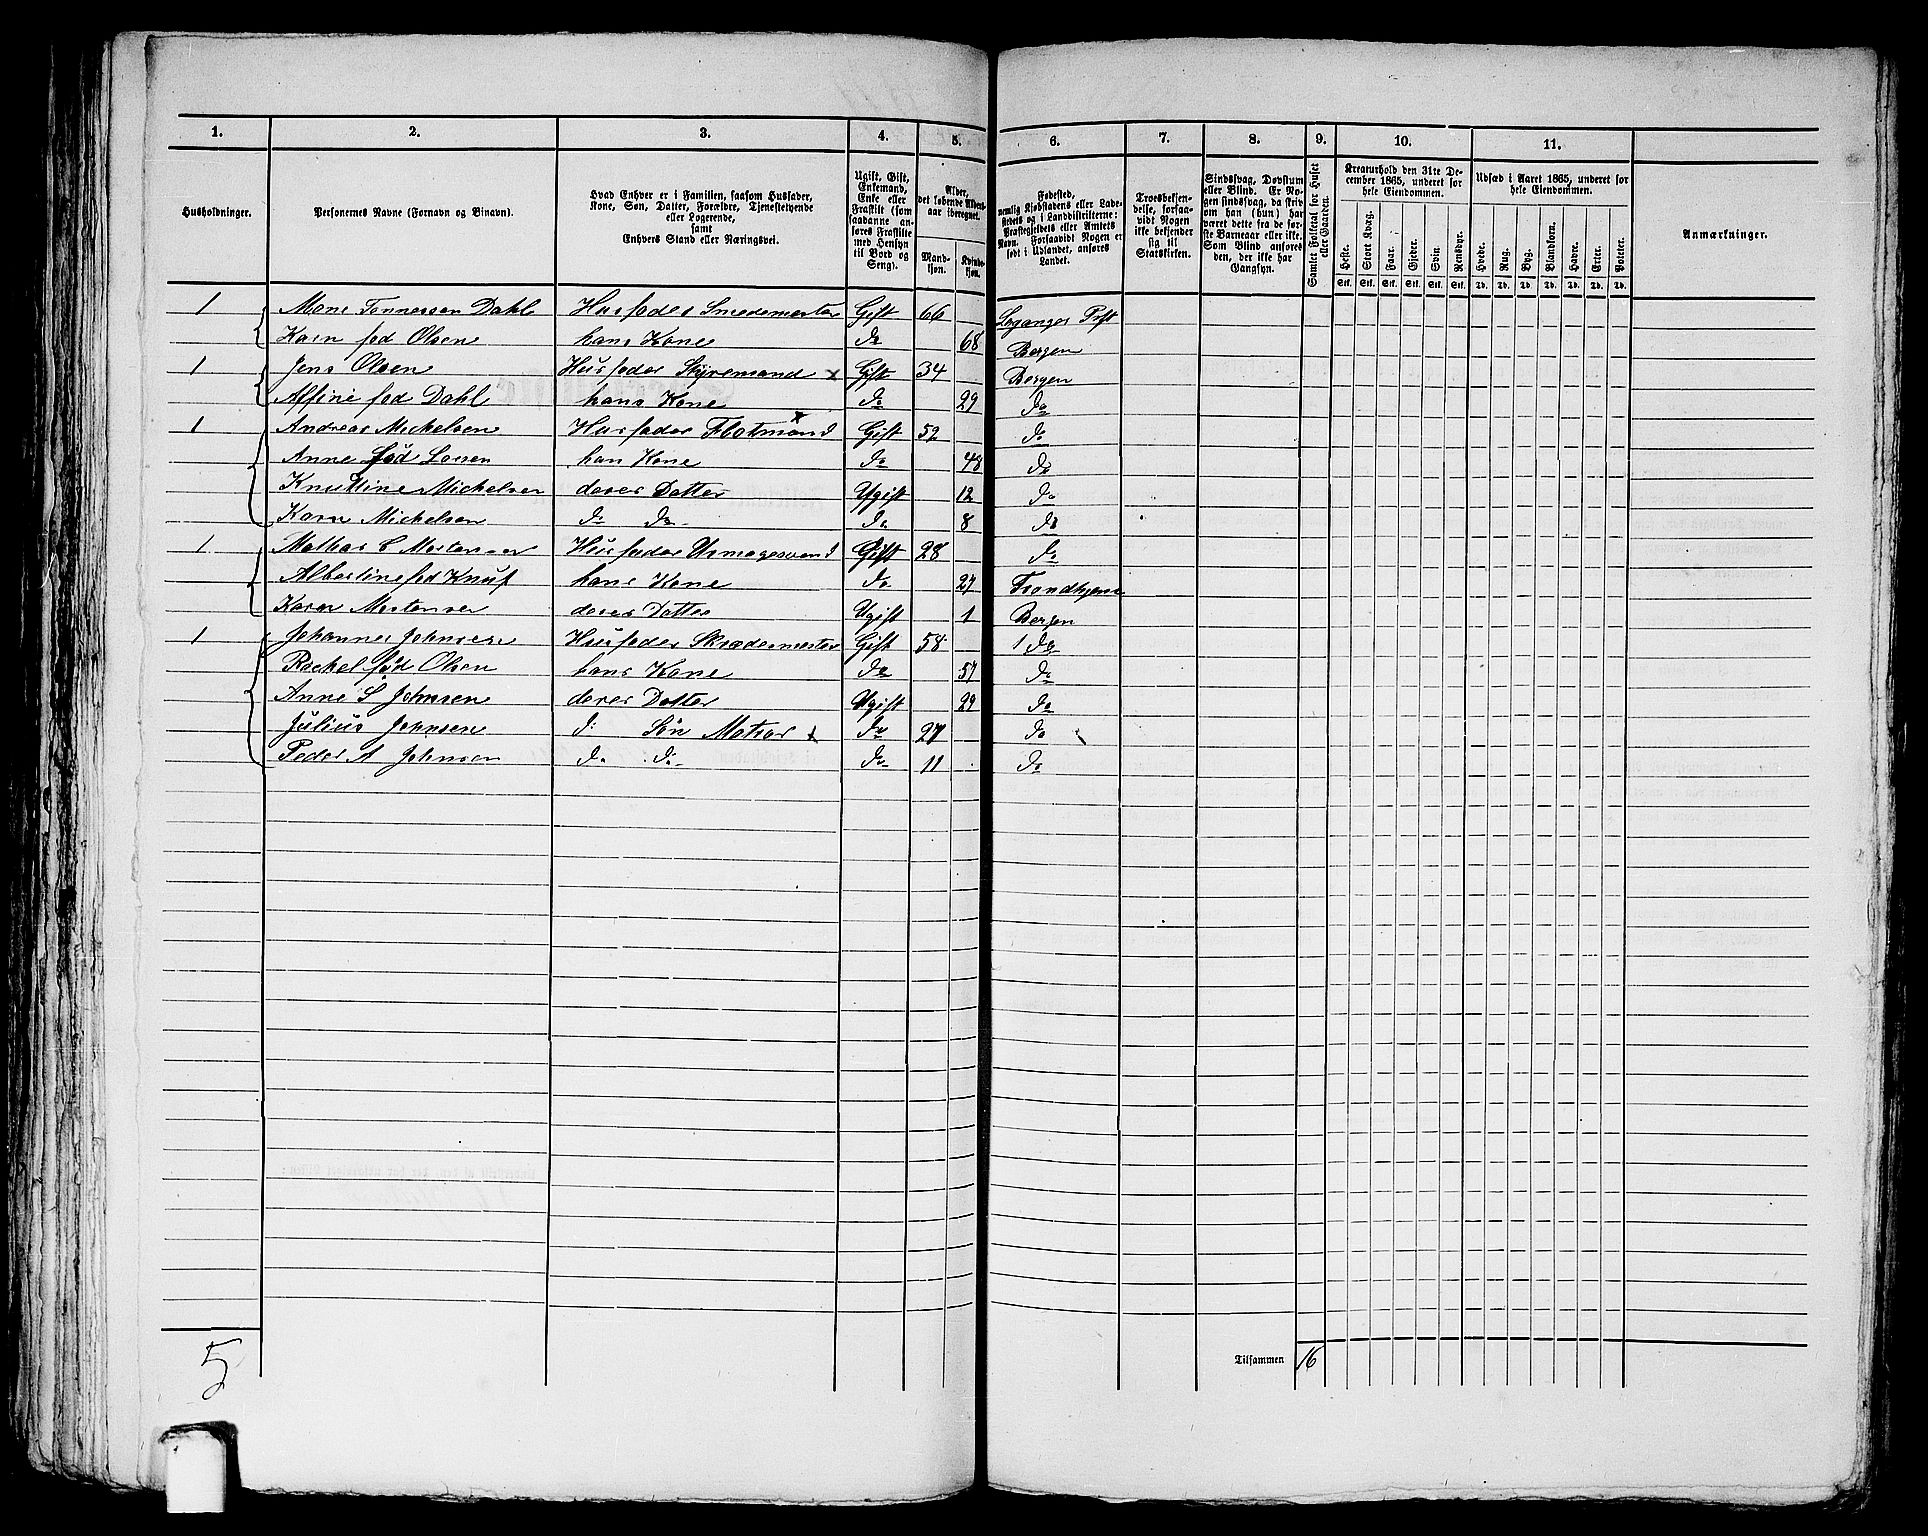 1. 2. 3. 4. 5. 6. 7. 8. 9. 10. 11.
Husholdninger.
Personernes Navne (Fornavn og Binavn).
Hvad Enhver er i Familien, saasom Husfader,
Kone, Søn, Datter, Forældre, Tjenestetyende
eller Logerende,
samt
Enhvers Stand eller Næringsvei.
Ugift, Gift,
Enkemand,
Enke eller
Fraskilt (som
saadanne an-
føres Fraskilte
med Hensyn
til Bord og
Seng).
Alder,
det løbende Alders-
aar iberegnet.
Mand-
kjøn.
Kvinde-
kjøn.
Fødested,
nemlig Kjøbstadens eller Lade-
stedets og i Landdistrikterne:
Præstegjeldets eller Amtets
Navn. Forsaavidt Nogen er
født i Udlandet, anføres
Landet.
Troesbekjen-
delse, forsaa-
vidt Nogen
ikke bekjender
sig til
Statskirken.
Sindssvag, Døvstum
eller Blind. Er No-
gen sindssvag, da skriv
om han (hun) har
været dette fra de før-
ste Barneaar eller ikke.
Som Blind anføres
den, der ikke har
Gangsyn.
Samlet Folketal for Huset
eller Gaarden.
Kreaturhold den 31te De-
cember 1865, underet for
hele Eiendommen.
Heste. Stort Kvæg. Faar. Gjeder. Svin. Rensdyr.
Stk. Stk. Stk. Stk. Stk. Stk.
Udsæd i Aaret 1865, underet for
hele Eiendommen.
Hvede. Rug. Byg. Blandkorn. Havre. Erter. Poteter.
Td. Td. Td. Td. Td. Td. Td.
Anmærkninger.
1 Mons Tonnessen Dahl Husfader Smedemester Gift 66 Leganger Prst
Karn fød Olsen hans Kone do 68 Bergen
1 Jens Olsen Husfader Styremand x Gift 34 Bergen
Alfine fød Dahl hans Kone do 29 do
1 Andreas Mickelsen Husfader Flotmand x Gift 52 do
Anne fød Larsen han Kone do 48 do
Knuttine Mickelsen deres Datter Ugift 12 do
Karn Mickelsen do do do 8 do
1 Mathas C Mortensen Husfader Urmagersvend Gift 28 do
Albertine fød Knuf hans Kone do 27 Trondhjem
Karn Mortensen deres Datter Ugift 1 Bergen
1 Johannes Johnsen Husfader Skrædermester Gift 58 1 do
Rackel fød Olsen hans Kone do 57 do
Anne S Johnsen deres Datter Ugift 29 do
Julius Johnsen do Søn Matros x do 27 do
Peder A Johnsen do do do 11 do
5
Tilsammen 16